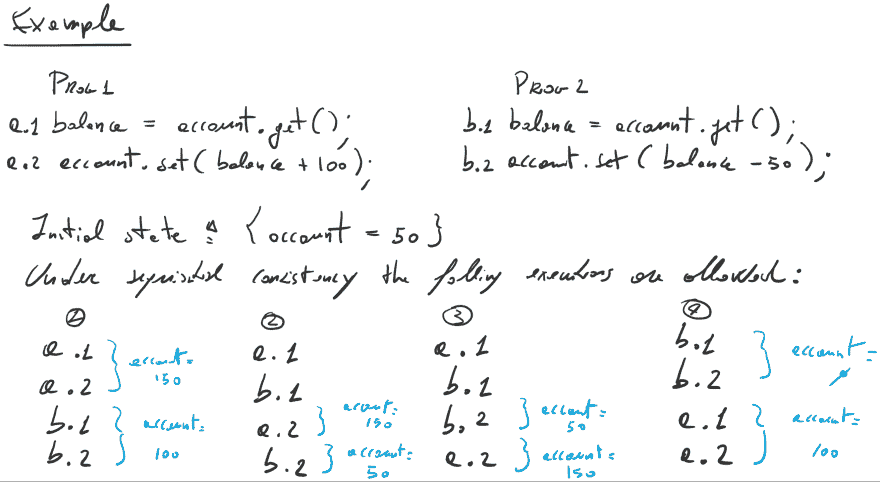 Example
Prog 1
a.1 balance = account.get();
a.2 account.set(balance + 100);
Prog 2
b.1 balance = account.get();
b.2 account.set(balance - 50);
Initial state ≜ {account = 50}
Under sequential consistency the following executions are allowed:
①
a.1
a.2
account = 150
b.1
b.2
account = 100
②
a.1
b.1
a.2
account = 150
b.2
account = 50
③
a.1
b.1
b.2
account = 50
a.2
account = 150
④
b.1
b.2
account =
a.1
a.2
account = 100